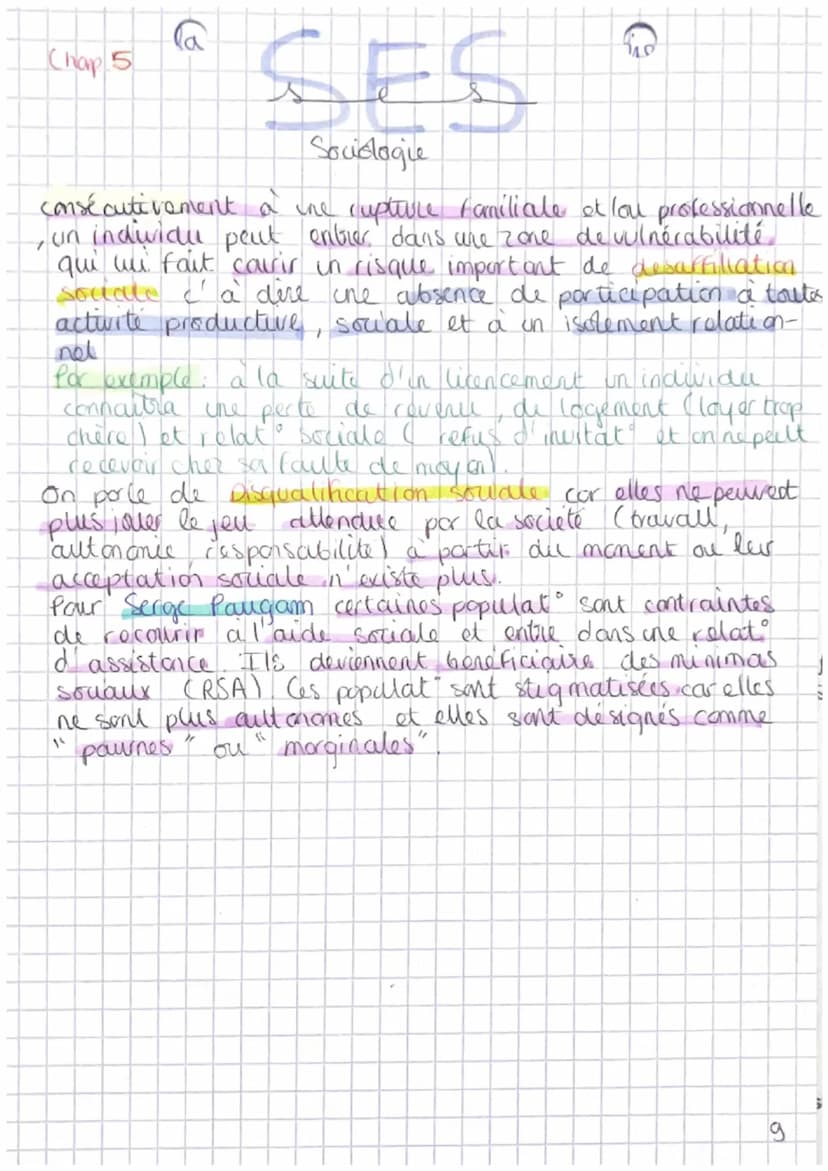 Chap 5
SES
ses
Sociologie
consécutivement à une rupture familiale et/ou professionnelle
, un individu peut entrer dans une zone de vulnérabilité
qui lui fait courir un risque important de desaffiliation
sociale c'à dire une absence de participation à toute
activité productive, sociale et à un isolement relation-
nel
Par exemple : à la suite d'un licencement un individu
connaitra une perte de revenu, du logement (loyer trop
chère) et relat° sociale ( refus d'invitat° et on ne peut
recevoir chez soi faute de moyen).
On parle de Disqualification sociale car elles ne peuvent
plus jouer le jeu attendue par la société (travail,
autonomie, responsabilité) à partir du moment ou leur
acceptation sociale n'existe plus.
Pour Serge Paugam certaines populat° sont contraintes
de recourir a l'aide sociale et entre dans une relat°
d'assistance. Ils deviennent bénéficiaire des minimas
sociaux (RSA). Ces populat° sont stigmatisées car elles
ne sont plus autonomes et elles sont désignés comme
"pauvres" ou "marginales".
9